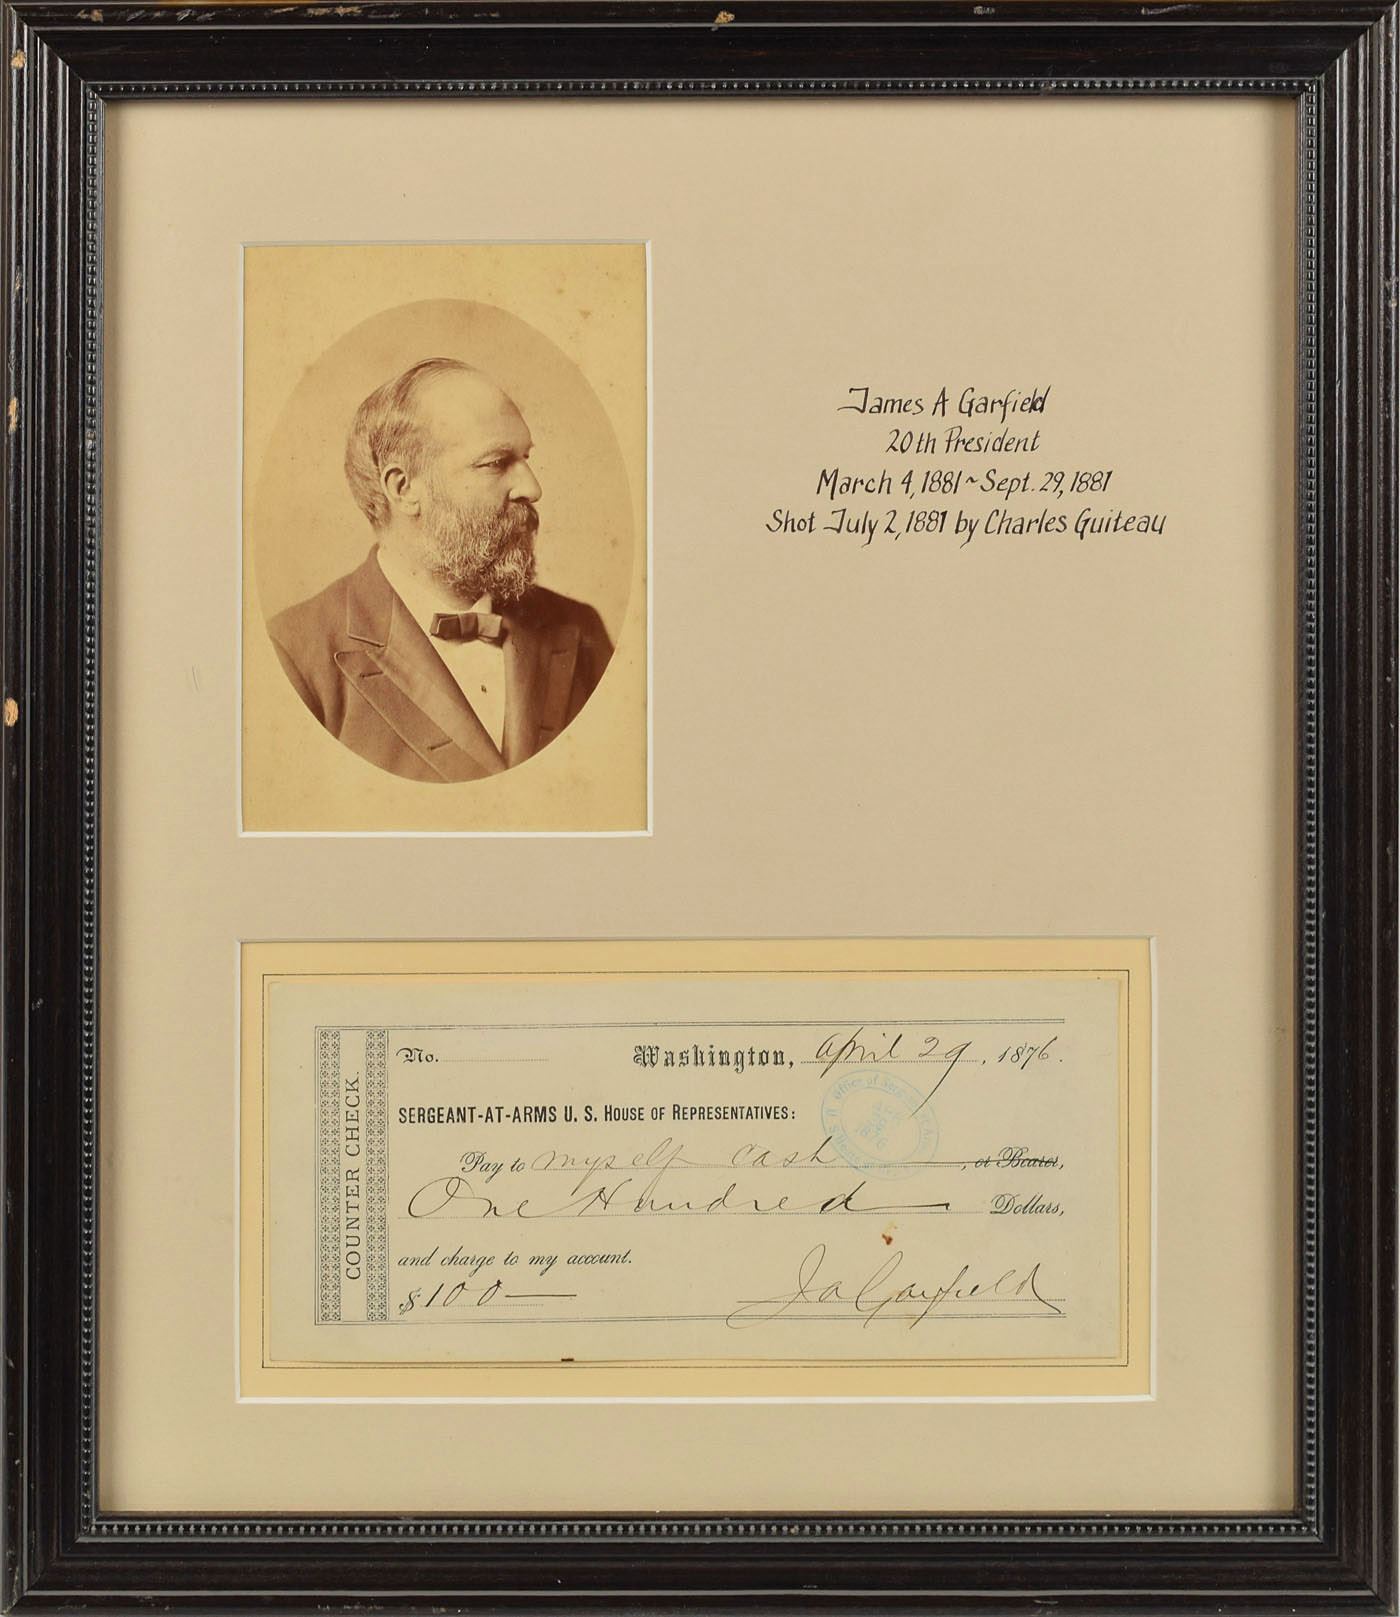 James A Garfield
20th President
March 4, 1881 ~ Sept. 29, 1881
Shot July 2, 1881 by Charles Guiteau
COUNTER CHECK.
No.
Washington, April 29, 1876.
SERGEANT-AT-ARMS U. S. HOUSE OF REPRESENTATIVES:
Pay to myself cash, or Bearer,
One Hundred Dollars,
and charge to my account.
$100—
J A Garfield
Office of Sergeant at Arms